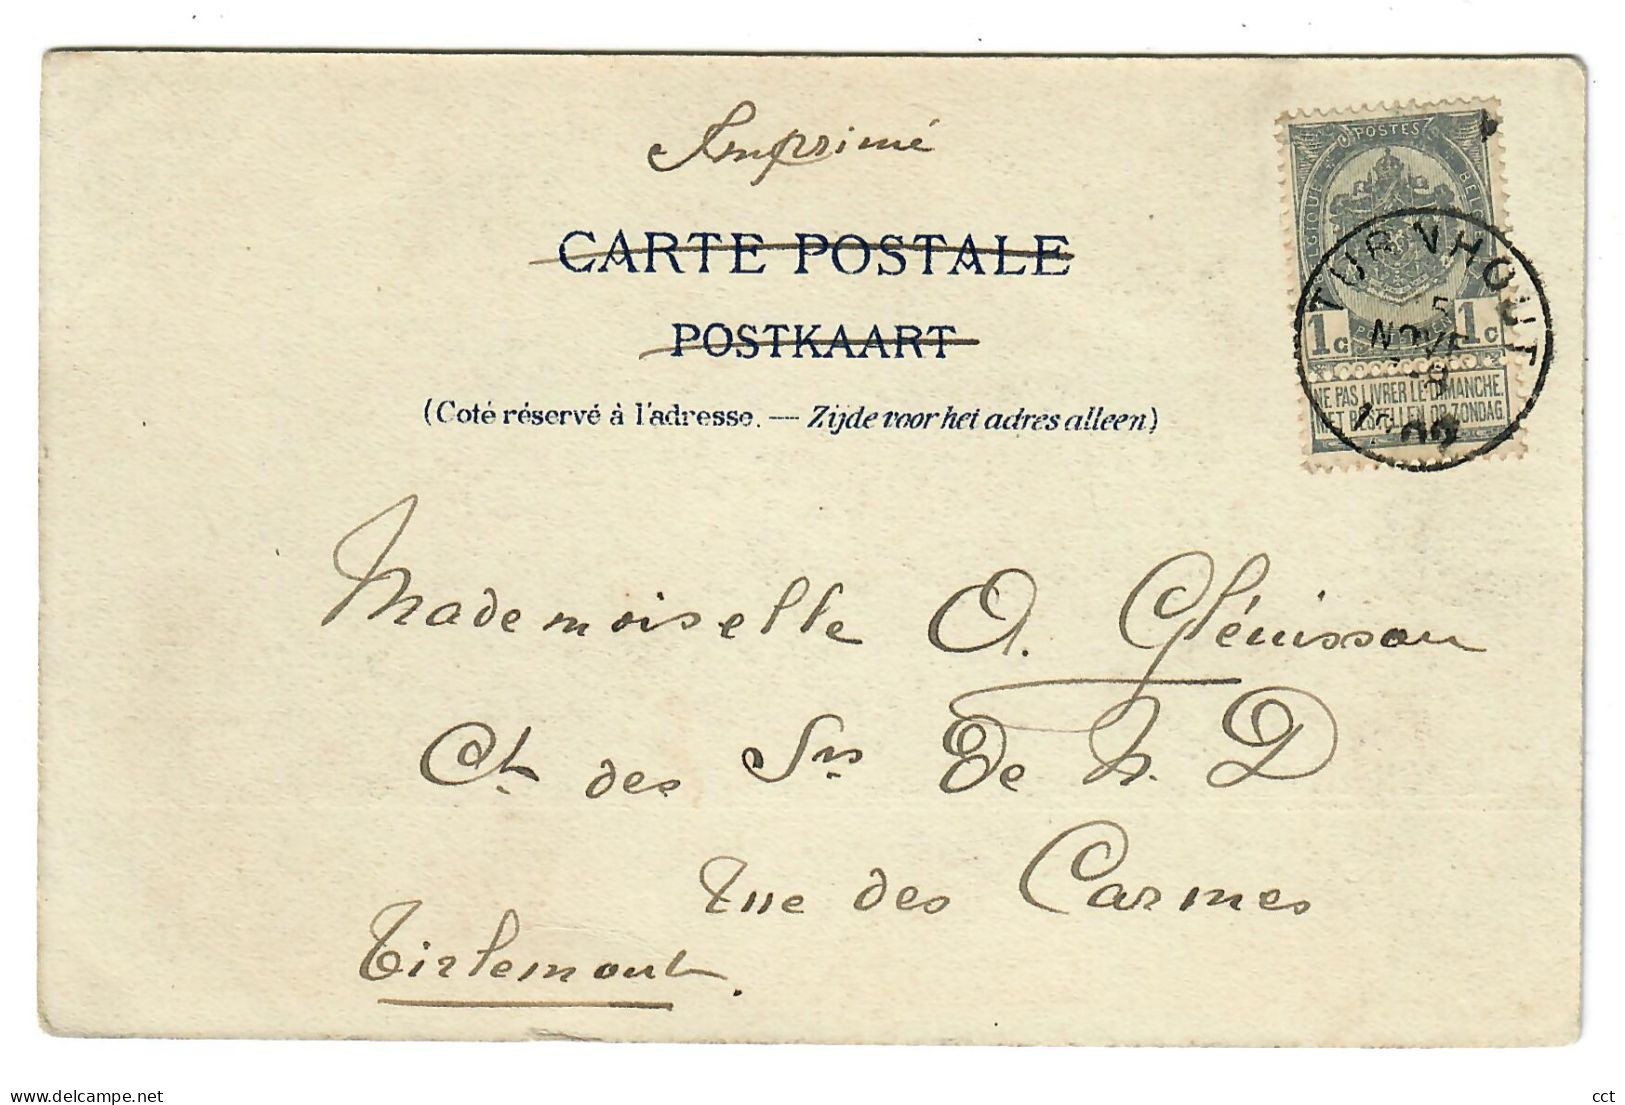 Imprimé
CARTE POSTALE
POSTKAART
(Coté réservé à l'adresse. — Zijde voor het adres alleen)
BELGIQUE POSTES BELGIE
1c 1c
NE PAS LIVRER LE DIMANCHE
NIET BESTELLEN OP ZONDAG
TURNHOUT
5
NOVE
Mademoiselle A. Glénisson
Ct des Srs De N. D
Rue des Carmes
Tirlemont.
www.delcampe.net
cct